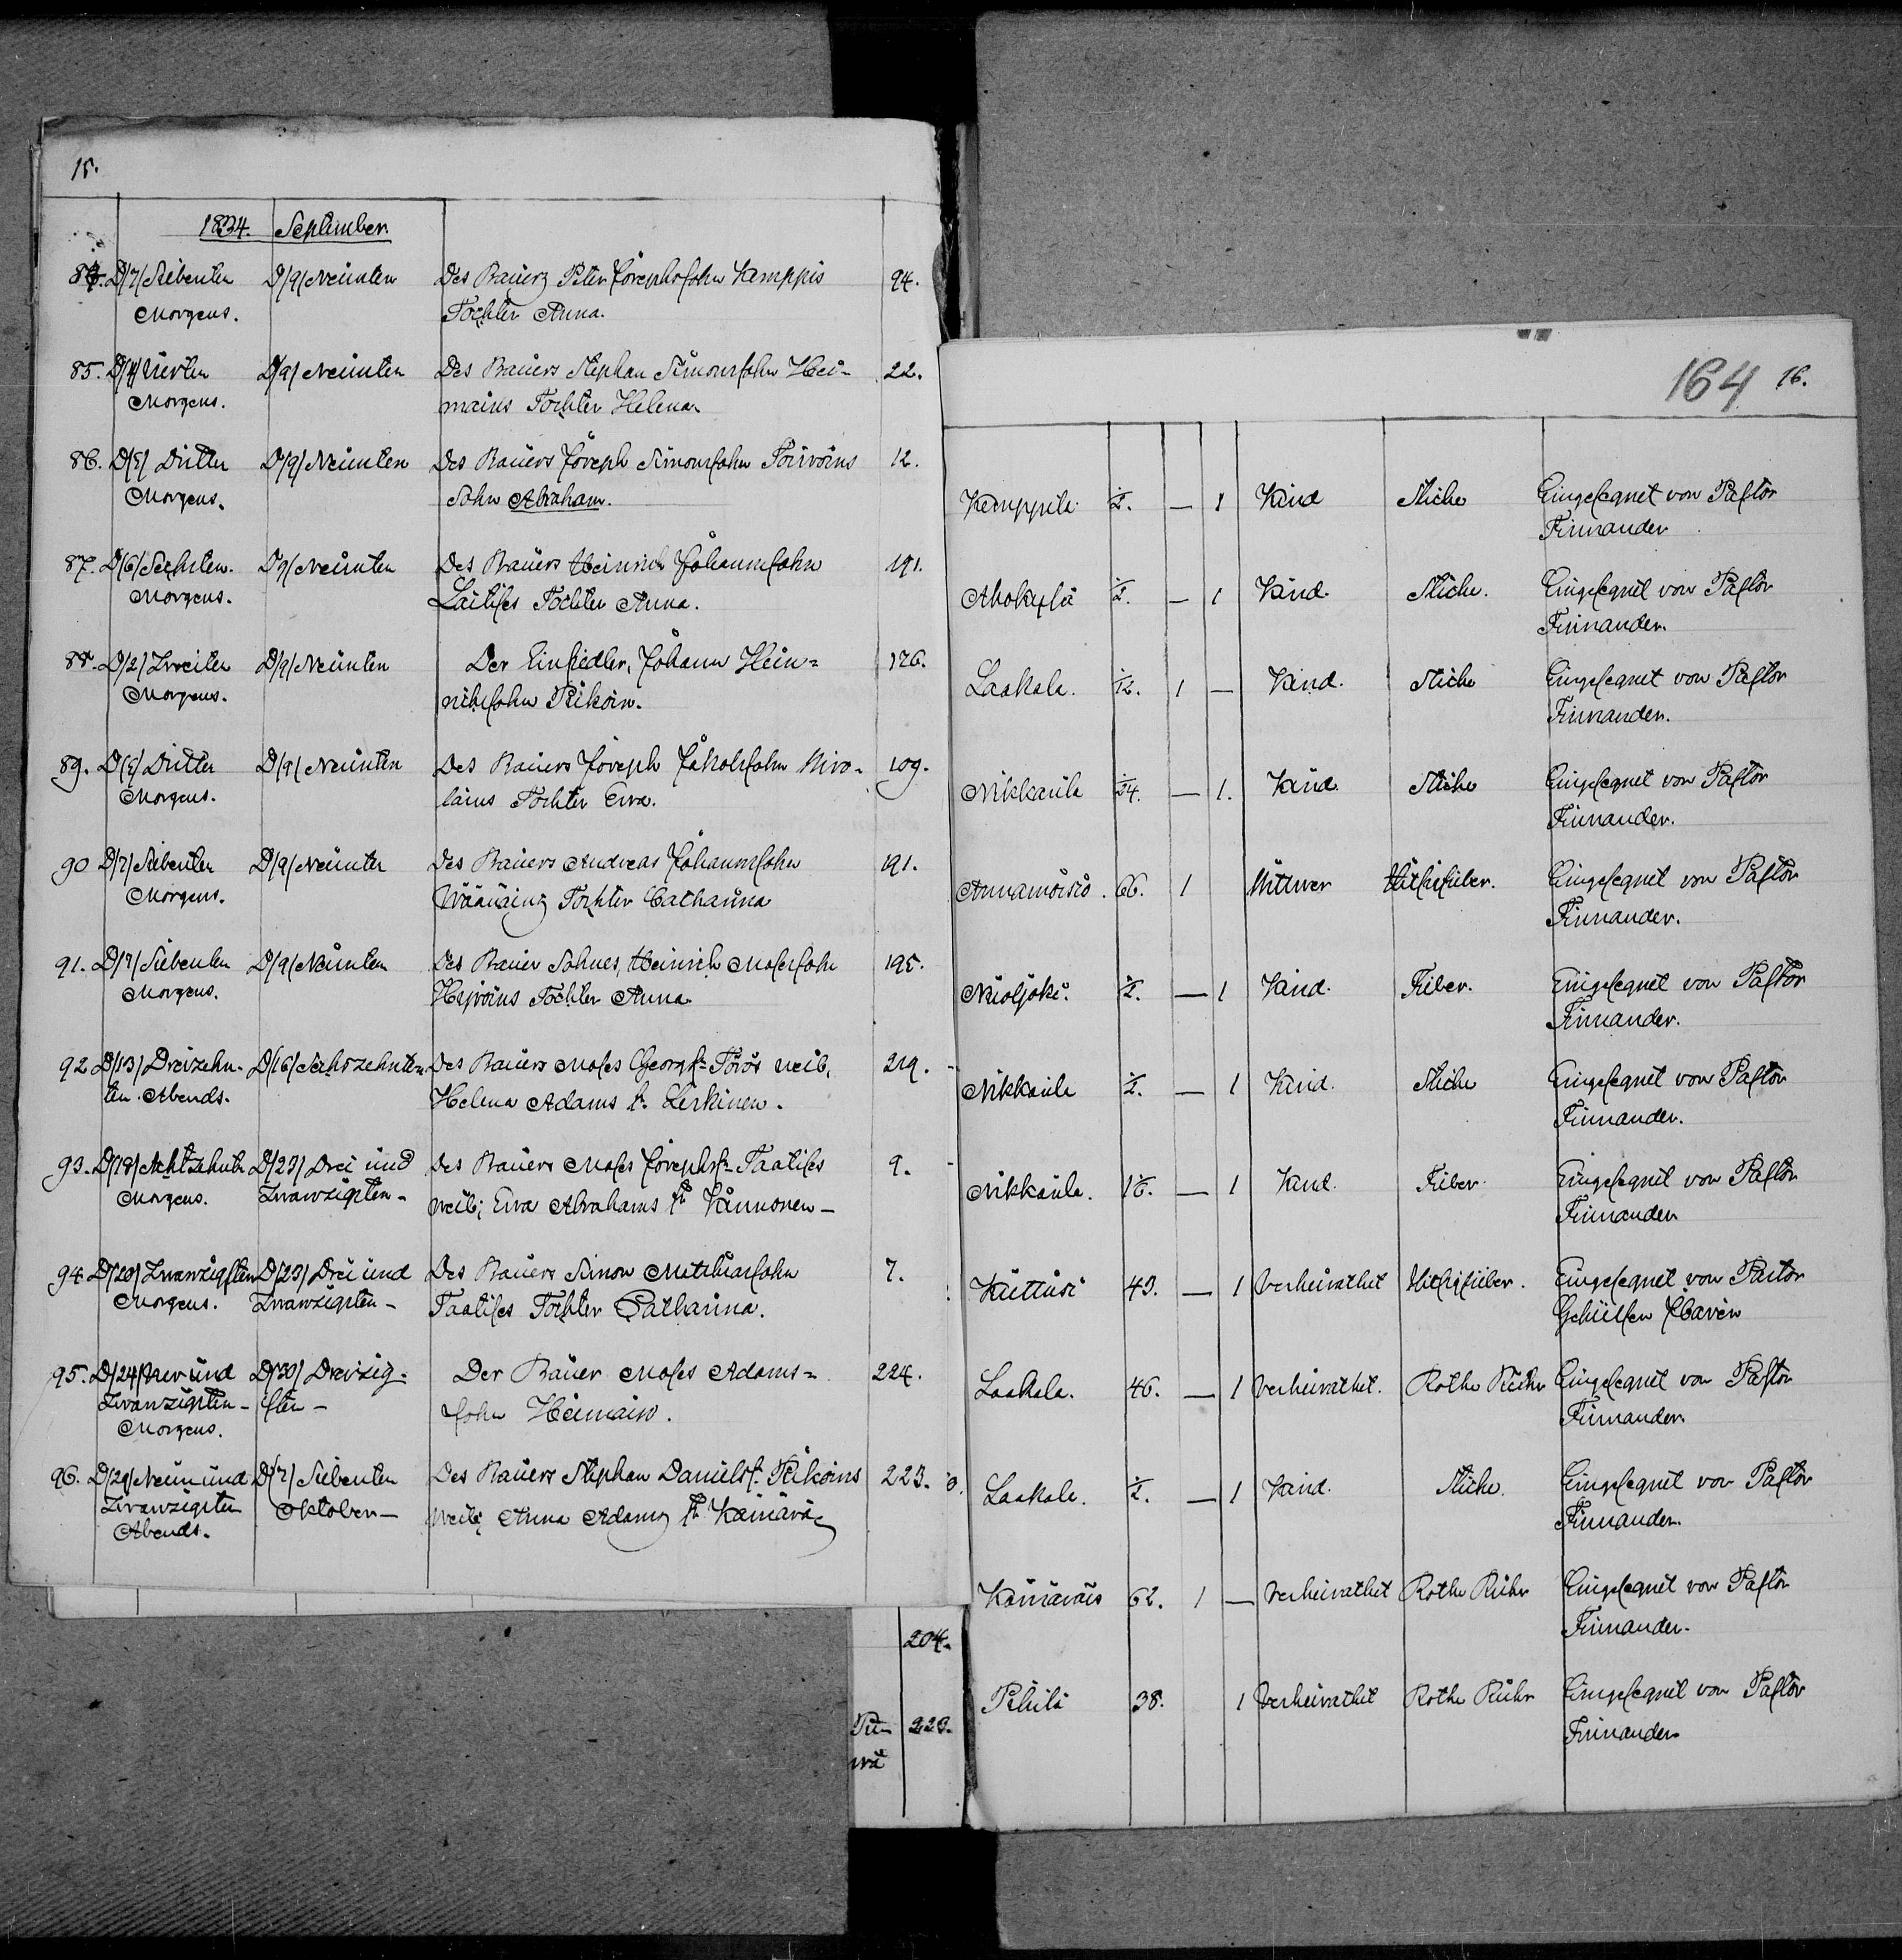 15.
1834. September.
84. D/7/ Siebenten D/9/ Neünten Des Bauers Peter Josephssohn Kemppis 94.
Morgens. Tochter Anna.
85. D/4/ Vierten D/9/ Neünten Des Bauers Stephan Simonssohn Hei- 22.
Morgens. mains Tochter Helena
86. D/3/ Dritten D/9/ Neünten Des Bauers Joseph Simonssohn Toivoins 12.
Morgens. Sohn Abraham.
87. D/6/ Sechsten D/9/ Neünten Des Bauers Heinrich Johannssohn 191.
Morgens. Laitises Tochter Anna.
88. D/2/ Zweiten D/9/ Neünten Der Einsiedler, Johann Hein- 126.
Morgens. richssohn Pikoin.
89. D/3/ Dritten D/9/ Neünten Des Bauers Joseph Jakobssohn Niro- 109.
Morgens. lains Tochter Ewa.
90 D/7/ Siebenten D/9/ Neünten Des Bauers Andreas Johannssohn 191.
Morgens. Wäänäins Tochter Catharina
91. D/7/ Siebenten D/9/ Neünten Des Bauer Sohnes, Heinrich Mosessohn 195.
Morgens. Tochter Anna
92 D/13/ Dreizehn- D/16/ Sechszehnten Des Bauers Moses Georgs. Törös weib, 219.
ten Abends. Helena Adams t. Lerkinen.
93. D/18/ Achtzehnten D/23/ Drei und Des Bauers Moses Josephss. Taatises 9.
Morgens. Zwanzigsten- weib; Ewa Abrahams t. Vännonen-
94 D/20/ Zwanzigsten D/23/ Drei und Des Bauers Simon Matthiassohn 7.
Morgens. Zwanzigsten- Taatises Tochter Catharina.
95. D/24/ Vier und D/30/ Dreizig- Der Bauer Moses Adams- 224.
Zwanzigsten- sten- sohn Heimain.
Morgens.
96. D/29/ Neün und D/7/ Siebenten Des Bauers Stephan Daniels. Pikoins 223.
Zwanzigsten Oktober- weib; Anna Adams t. Kämärä
Abends.
204.
223.
164 16.
Kemppila 1/2. — 1 Kind Stiche Eingesegnet von Pastor
Finnander
Ahokylä 1/2. — 1 Kind. Stiche. Eingesegnet von Pastor
Finnander.
Laakala. 1/12. 1 — Kind. Stiche Eingesegnet von Pastor
Finnander.
Nikkaula 1/24. — 1. Kind. Stiche Eingesegnet von Pastor
Finnander.
Annamoisio. 66. 1 Wittwer Hitzfieber. Eingesegnet von Pastor
Finnander.
1/2. — 1 Kind. Fieber. Eingesegnet von Pastor
Finnander.
Nikkaula 1/2. — 1 Kind. Stiche Eingesegnet von Pastor
Finnander.
Nikkaula. — 1 Kind. Fieber. Eingesegnet von Pastor
Finnander
43. — 1 Verheirathet Hitzfieber. Eingesegnet von Pastor
Gehülfen
Laakala. 46. — 1 Verheirathet. Rothe Ruhr Eingesegnet von Pastor
Finnander.
Laakala. 1/2. — 1 Kind. Stiche. Eingesegnet von Pastor
Finnander.
Kämäräis 62. 1 — Verheirathet Rothe Ruhr Eingesegnet von Pastor
Finnander.
38. 1 Verheirathet Rothe Ruhr Eingesegnet von Pastor
Finnander